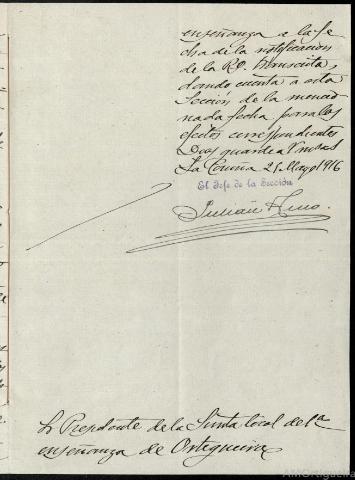 enseñanza a la fe
cha de la notificación
de la R.O. transcrita,
dando cuenta a esta
Sección de la mencio
nada fecha para los
efectos correspondientes
Dios guarde a V. muchos
La Coruña 21 Mayo 1916
El Jefe de la Sección
Julián
Sr Presidente de la Junta local de 1ª
enseñanza de Ortigueira
AMOrtigueira